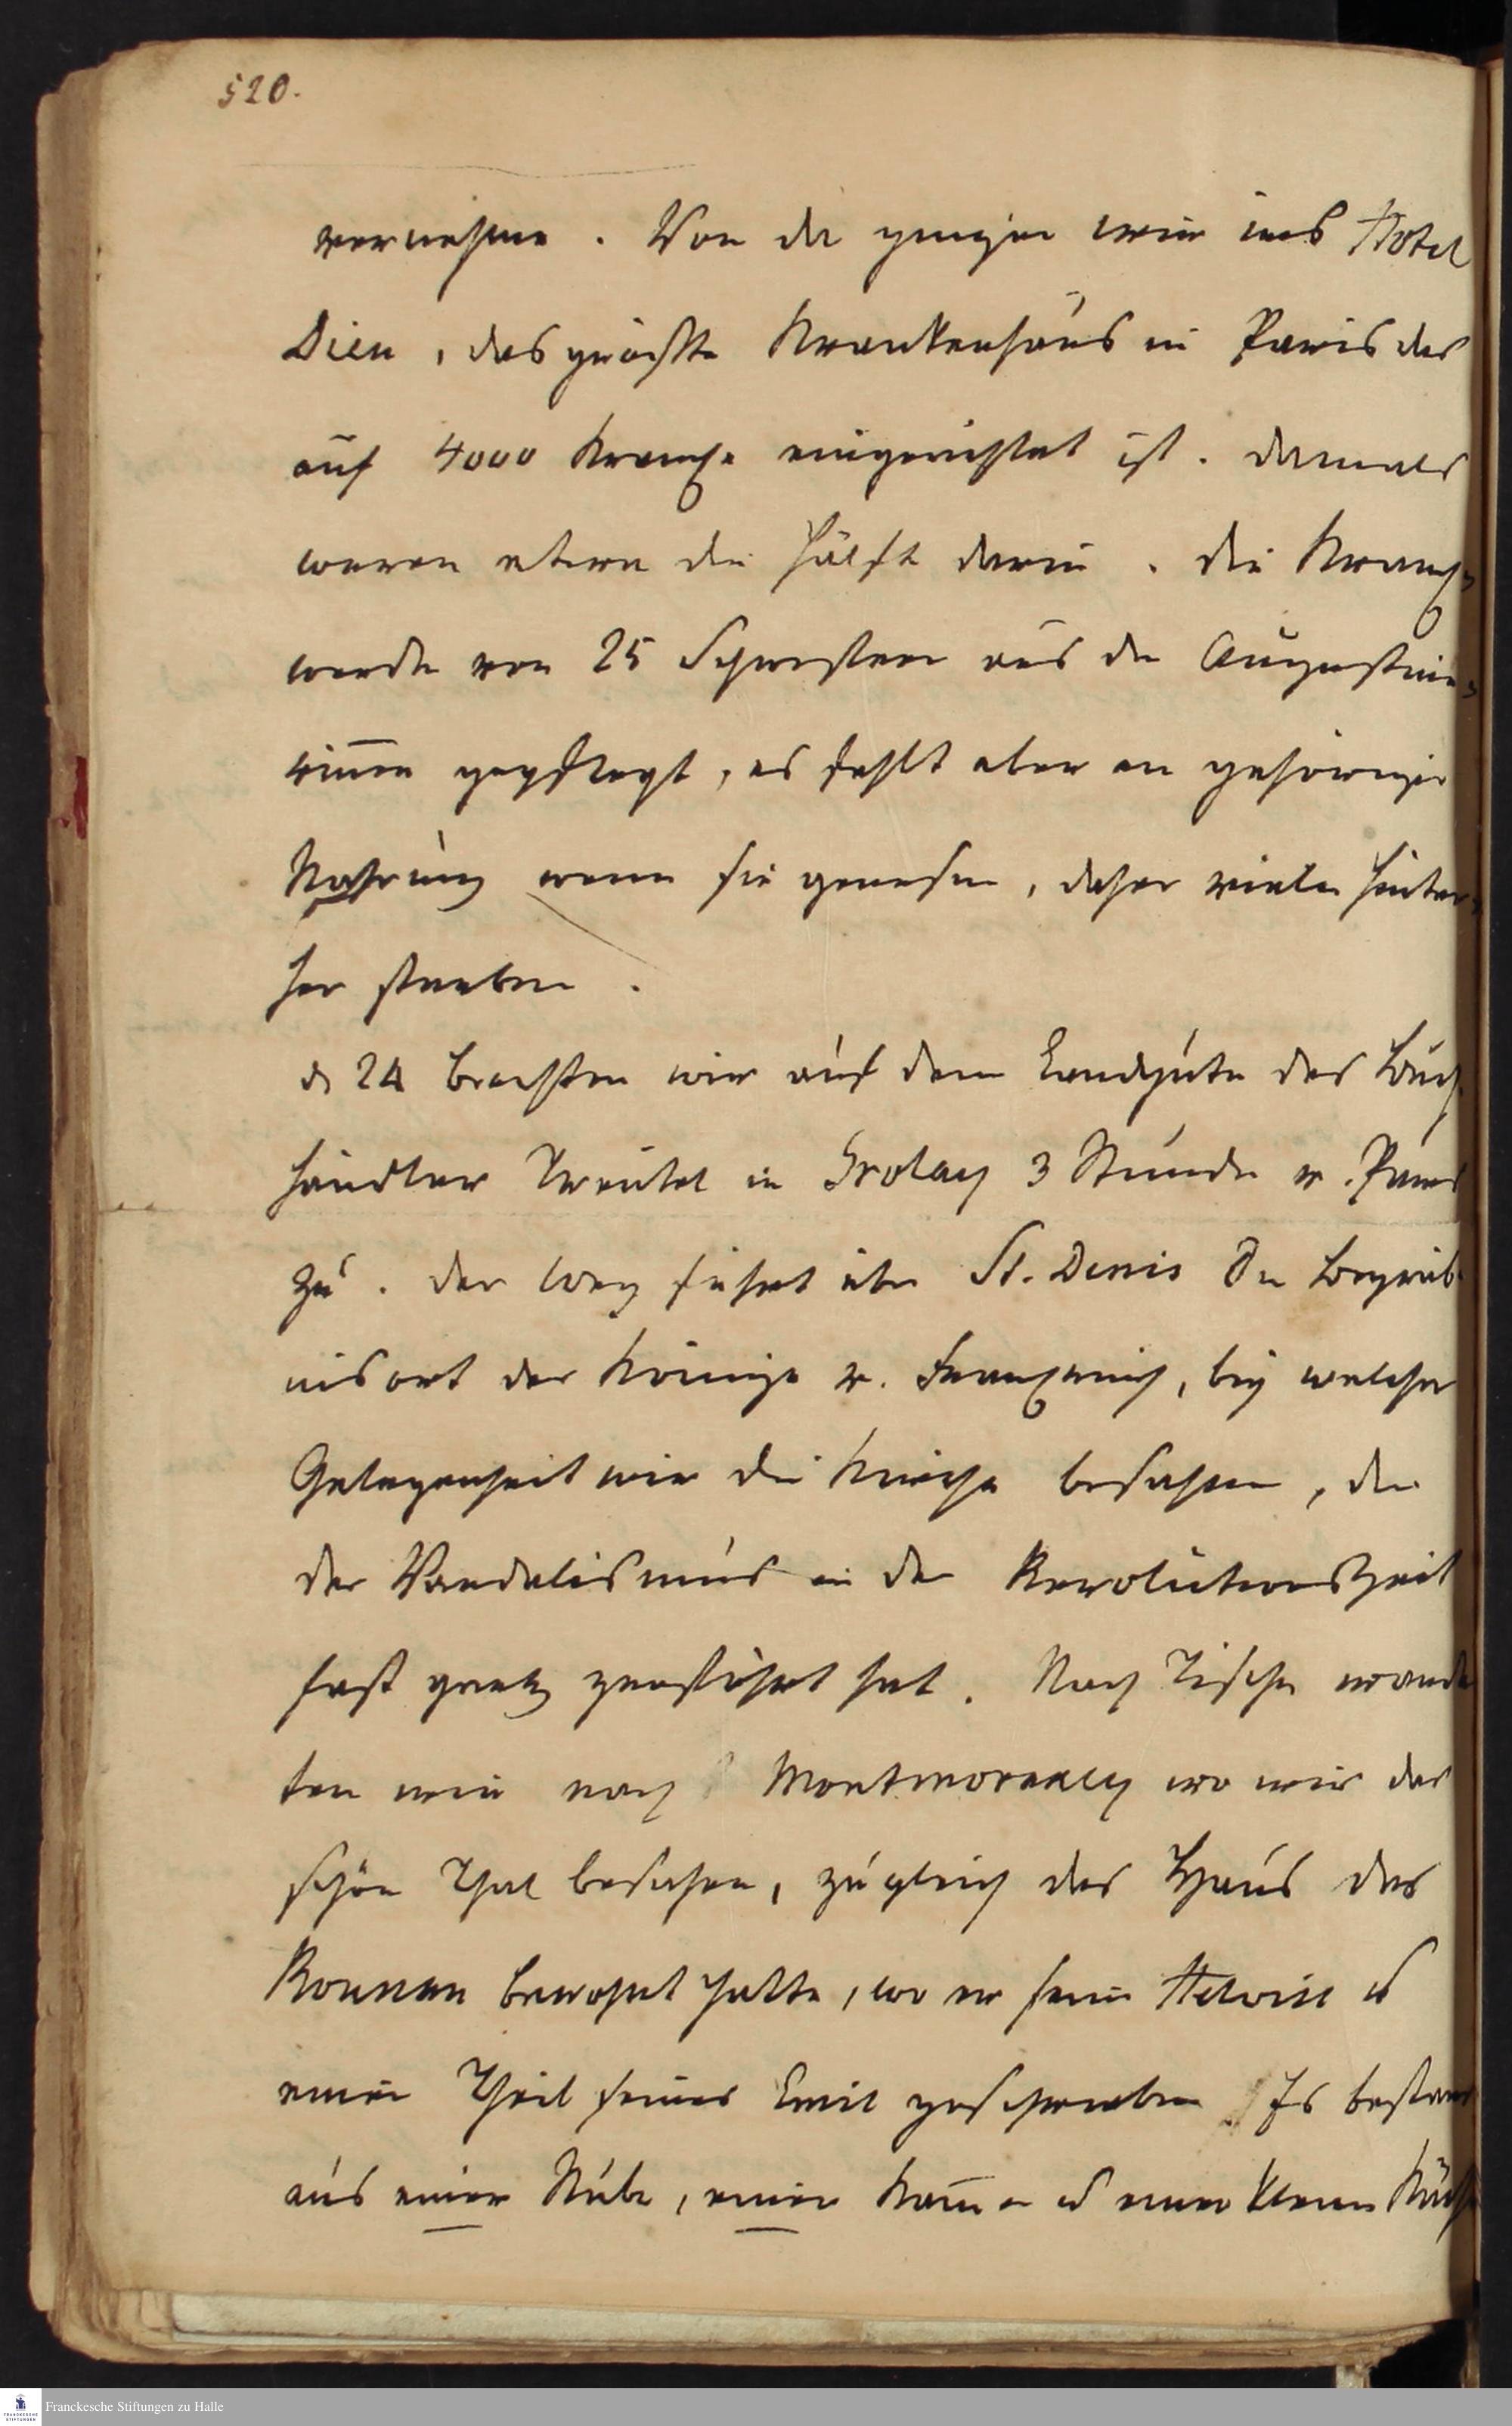 520.
vernehme. Von da gingen wir ins Hotel
Dieu, das größte Krankenhaus in Paris das
auf 4000 Krancke eingerichtet ist. Damals
waren etwa die Hälfte darin. Die Kranck-
werden von 25 Schwestern aus den Augustine-
rinnen gepflegt, es fehlt aber an gehöriger
Nahrung wenn sie genesen, daher viele hinter-
her sterben.
d 24 brachten wir auf dem Landgute des Buch
händler Treutel in Grolay 3 Stunden v. Paris
zu. Der Weg führt über St. Denis den Begräb
nisort der Könige v. Franckreich, bey welcher
Gelegenheit wir die Kirche besahen, die
der Vandalismus in der Revolutionszeit
fast gantz zerstöhrt hat. Nach Tische wander
ten wir nach Montmorency wo wir das
schöne Thal besahen, zugleich das Haus das
Roussau bewohnt hatte, wo er seine Heloise u
einen Theil seines Emil geschrieben Es bestand
aus einer Stube, einer Kammer u einer kleinen Küche
Franckesche Stiftungen zu Halle